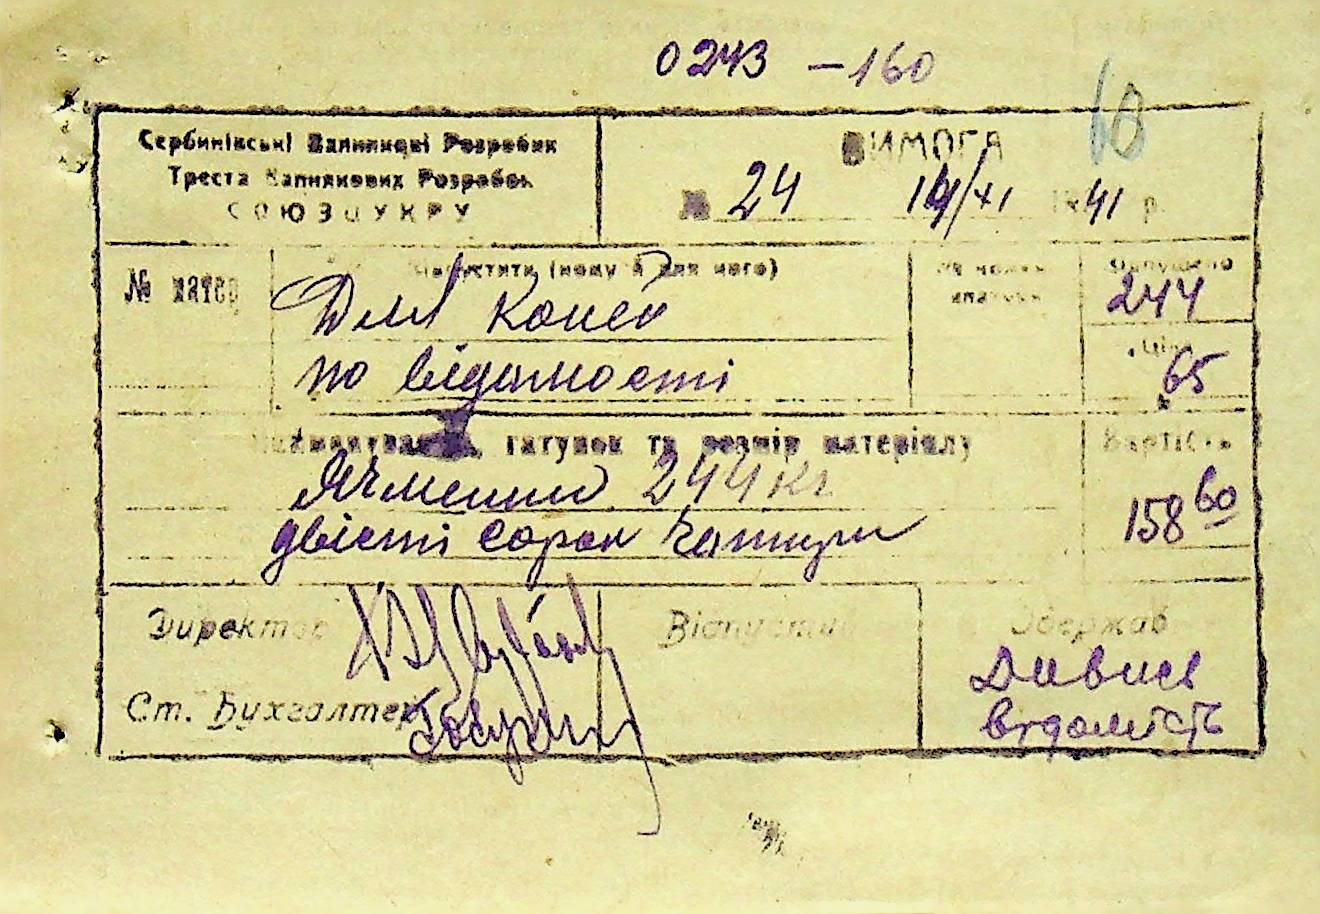 0243 – 160
10
Сербинівські Вапнякові Розробки
Треста Вапнякових Розробок
СОЮЗЦУКРУ
ВИМОГА
№ 24 14/XI 1941 р.
№ матер
Відпустити (кому й для чого)
Для коней
по відомості
Відпущено
244
Ціна
65
Найменування, гатунок та розмір матеріалу
Вартість
Ячменю 244 кг
двісті сорок чотири
158 60
Директор
Відпустив
Здержав
Ст. Бухгалтер
Дивись
відомість